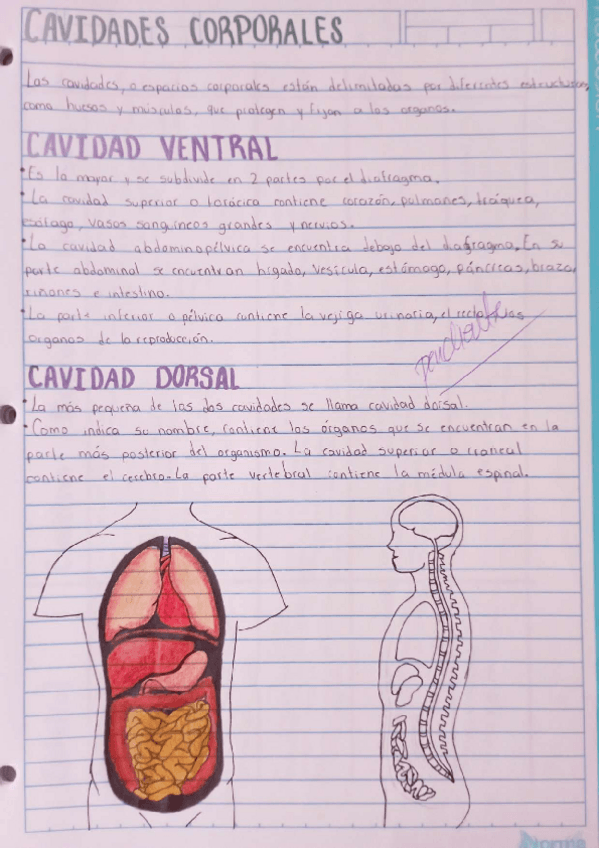 CAVIDADES CORPORALES
Las cavidades, o espacios corporales están delimitadas por diferentes estructuras,
como huesos y músculos, que protegen y fijan a los organos.
CAVIDAD VENTRAL
• Es la mayor y se subdivide en 2 partes por el diafragma.
• La cavidad superior o torácica contiene corazón, pulmones, tráquea,
esófago, vasos sanguíneos grandes y nervios.
• La cavidad abdominopélvica se encuentra debajo del diafragma. En su
parte abdominal se encuentran hígado, vesícula, estómago, páncreas, brazo,
riñones e intestino.
• La parte inferior o pélvica contiene la vejiga urinaria, el recto y los
organos de la reproducción.
CAVIDAD DORSAL
• La más pequeña de las dos cavidades se llama cavidad dorsal.
• Como indica su nombre, contiene los órganos que se encuentran en la
parte más posterior del organismo. La cavidad superior o craneal
contiene el cerebro. La parte vertebral contiene la médula espinal.
Norma